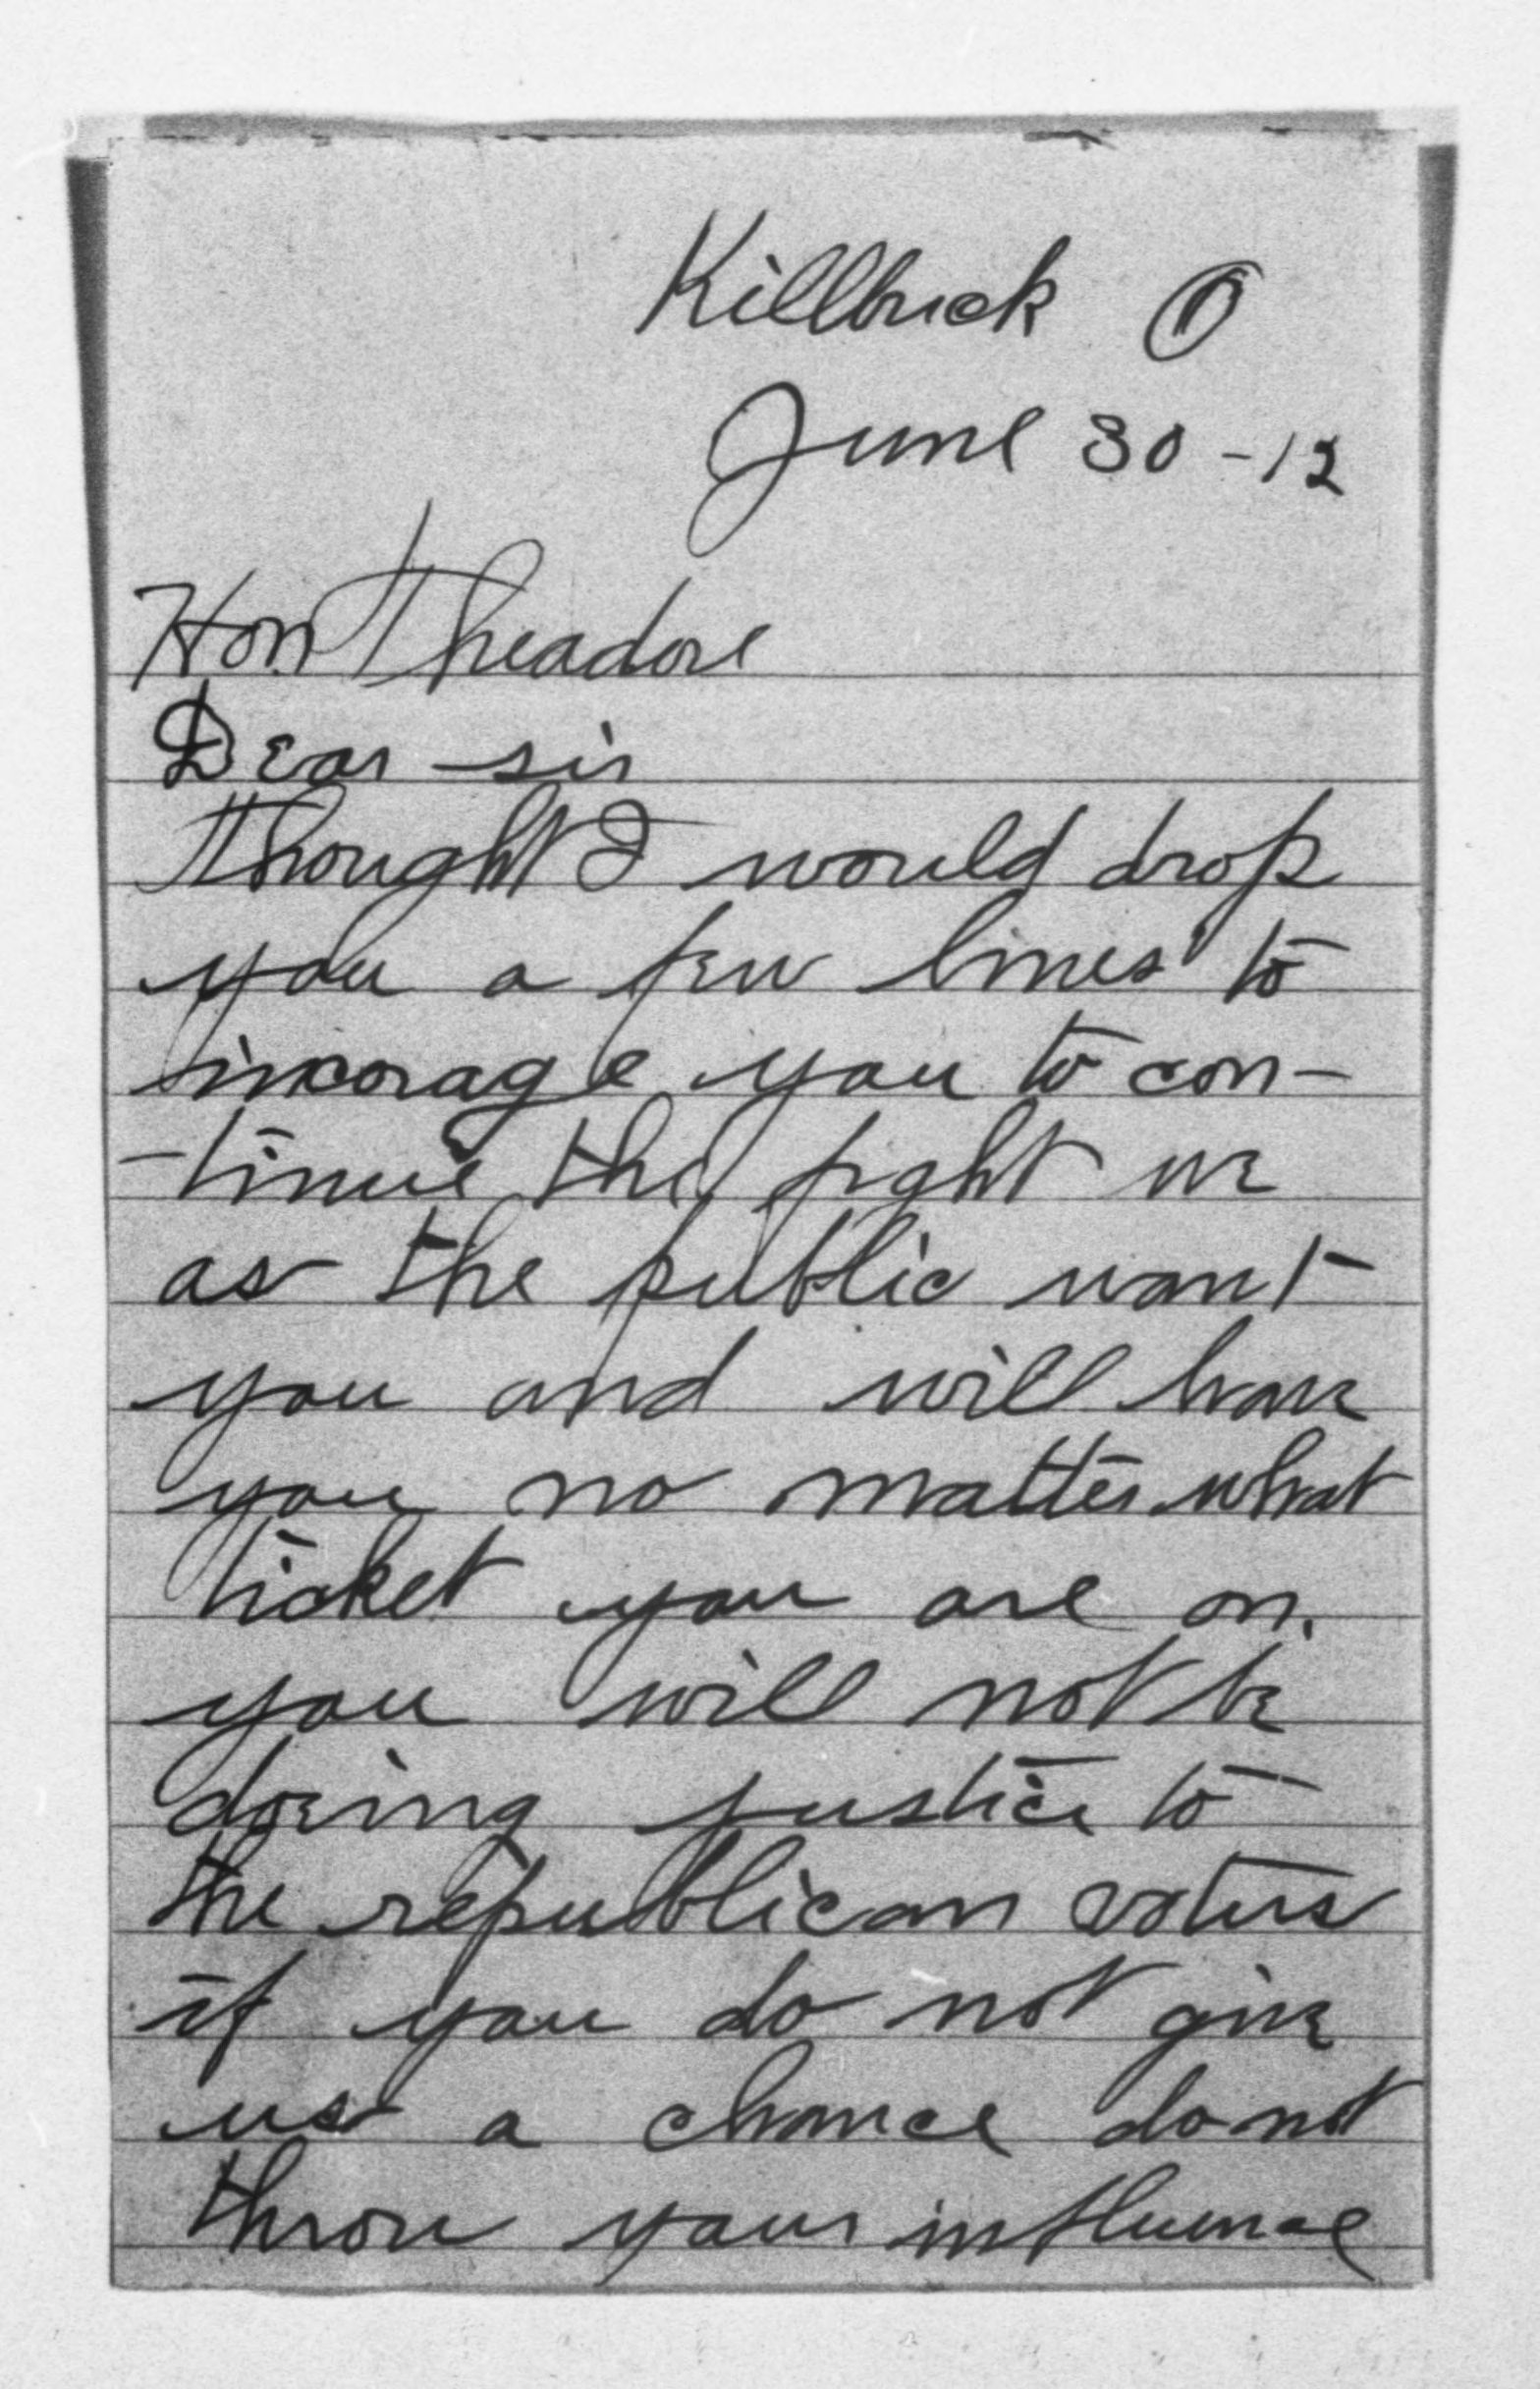 Killbuck O
June 30 - 12
Hon Theadore
Dear sir
Thought I would drop
you a few lines to
incorage you to con-
-tinue the fight we
as the public want
you and will have
you no matter what
ticket you are on.
you will not be
doeing justice to
the republican voters
if you do not give
us a chance do not
throw your influence